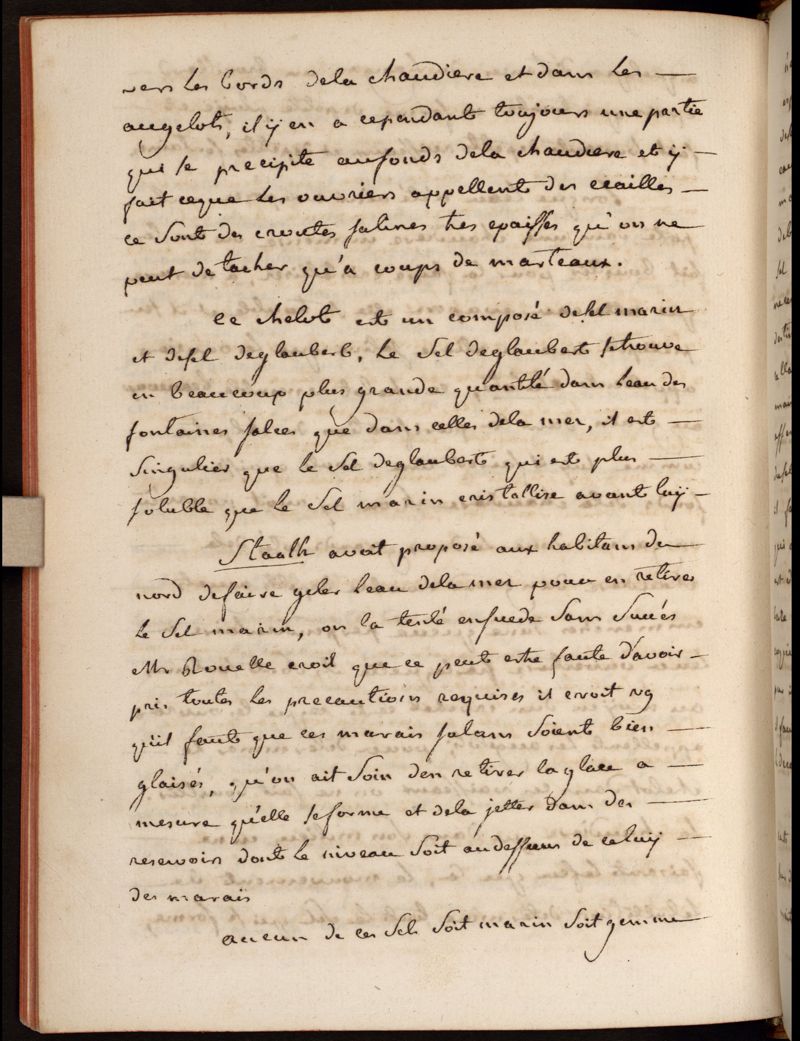 vers les bords dela chaudiere et dans les —
augelots, il y en a cependant toujours une partie
qui se precipite aufonds dela chaudiere et y —
fait ceque les ouvriers appellent des ecailles —
ce sont des croutes salines tres epaisses qu'on ne
peut detacher qu'a coups de marteaux.
Ce chelot est un composé desel marin
et desel deglauberb, le Sel deglaubert setrouve
en beaucoup plus grande quantité dans leau des
fontaines salées que dans celles dela mer, il est —
singulier que le Sel deglaubert qui est plus —
soluble que le Sel marin cristallise avant luy —
Staalh avoit proposé aux habitans du
nord defaire geler leau dela mer pour en retirer
le Sel marin, on la tenté ensuede Sans Succés
Mr Rouelle croit que ce peut estre faute d'avoir —
pris toutes les precautions requises il croit
qu'il faut que ces marais salans Soient bien —
glaisés, qu'on ait Soin d'en retirer la glace a —
mesure qu'elle seforme et dela jetter dans des —
reservoirs dont le niveau Soit audessus de celuy —
des marais
aucun de ces Sels Soit marin Soit gemme